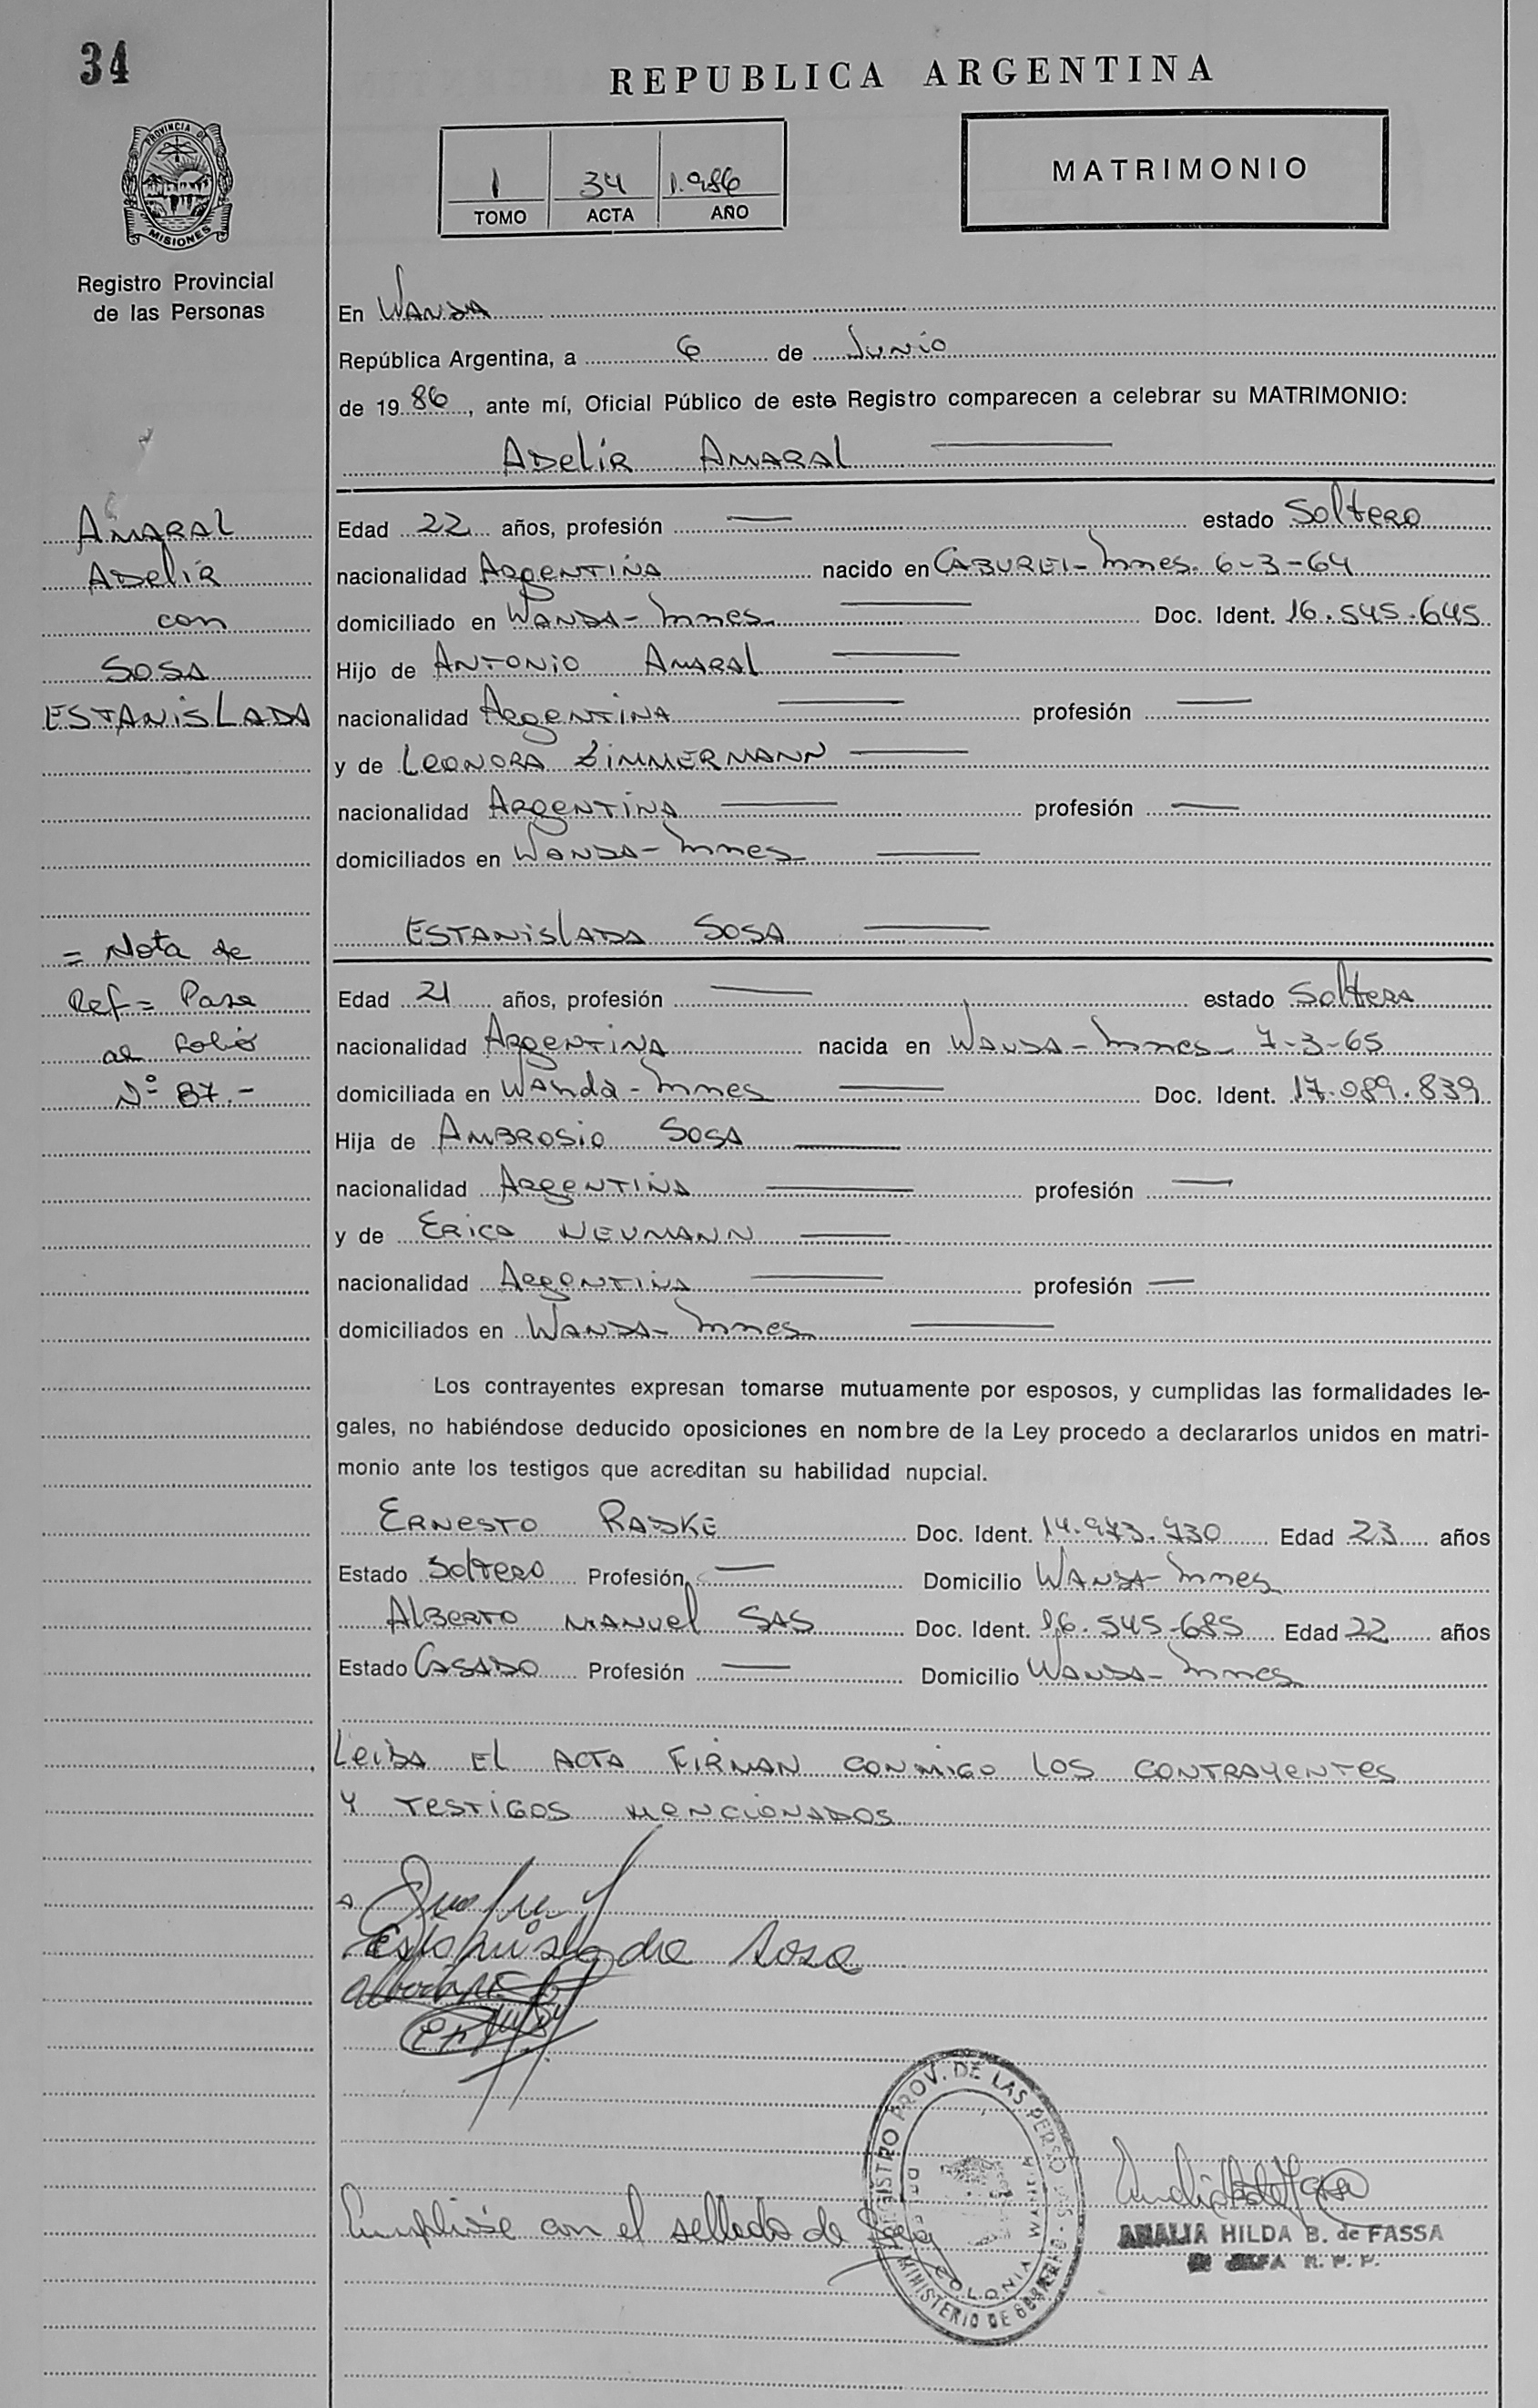 34
REPUBLICA ARGENTINA
PROVINCIA DE
MISIONES
Registro Provincial
de las Personas
1 34 1.986
TOMO ACTA AÑO
MATRIMONIO
En WANDA
República Argentina, a 6 de Junio
de 19 86, ante mí, Oficial Público de este Registro comparecen a celebrar su MATRIMONIO:
ADELIR AMARAL
AMARAL
ADELIR
con
SOSA
ESTANISLADA
Edad 22 años, profesión — estado Soltero
nacionalidad ARGENTINA nacido en CABUREI-Mnes. 6-3-64
domiciliado en WANDA-Mnes — Doc. Ident. 16.545.645
Hijo de ANTONIO AMARAL —
nacionalidad ARGENTINA — profesión —
y de LEONORA ZIMMERMANN —
nacionalidad ARGENTINA — profesión —
domiciliados en WANDA-Mnes —
ESTANISLADA SOSA —
= Nota de
Ref = Pasa
al folio
Nº 87.-
Edad 21 años, profesión — estado Soltera
nacionalidad ARGENTINA nacida en WANDA-Mnes- 7-3-65
domiciliada en Wanda-Mnes — Doc. Ident. 17.089.839
Hija de AMBROSIO SOSA —
nacionalidad ARGENTINA — profesión —
y de ERICA NEUMANN —
nacionalidad ARGENTINA — profesión —
domiciliados en WANDA-Mnes —
Los contrayentes expresan tomarse mutuamente por esposos, y cumplidas las formalidades le-
gales, no habiéndose deducido oposiciones en nombre de la Ley procedo a declararlos unidos en matri-
monio ante los testigos que acreditan su habilidad nupcial.
ERNESTO RADKE Doc. Ident. 14.973.730 Edad 23 años
Estado Soltero Profesión — Domicilio WANDA-Mnes
ALBERTO MANUEL SAS Doc. Ident. 16.545-685 Edad 22 años
Estado CASADO Profesión — Domicilio WANDA-Mnes
LEIDA EL ACTA FIRMAN CONMIGO LOS CONTRAYENTES
Y TESTIGOS MENCIONADOS
Estanislada Sosa
REGISTRO PROV. DE LAS PERSONAS
COLONIA WANDA
MINISTERIO DE GOBIERNO
Cumplióse con el sellado de Ley
ANALIA HILDA B. de FASSA
JEFA R. P. P.